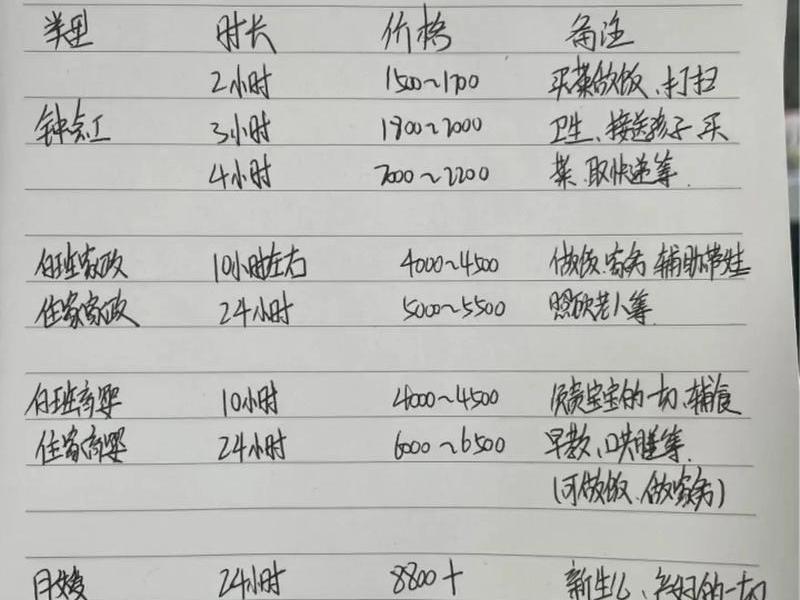 类型 时长 价格 备注
2小时 1500~1700 买菜做饭、打扫
钟点工 3小时 1800~2000 卫生、接送孩子、买
4小时 2000~2200 菜、取快递等
白班家政 10小时左右 4000~4500 做饭、家务、辅助带娃
住家家政 24小时 5000~5500 照顾老人等
白班育婴 10小时 4000~4500 负责宝宝的一切、辅食
住家育婴 24小时 6000~6500 早教、哄睡等
(可做饭、做家务)
月嫂 24小时 8800+ 新生儿、产妇的一切